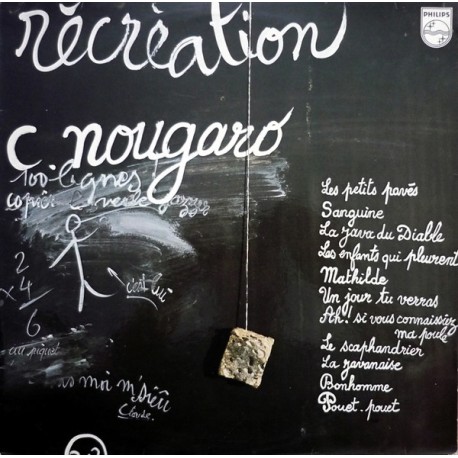 récréation
PHILIPS
c. nougaro
100 lignes
copié
2
x 4
6
au piquet
c'est lui
moi m'sieu
Claude.
Les petits pavés
Sanguine
La java du Diable
Les enfants qui pleurent
Mathilde
Un jour tu verras
Ah! si vous connaissiez
ma poule
Le scaphandrier
La javanaise
Bonhomme
Pouet-pouet